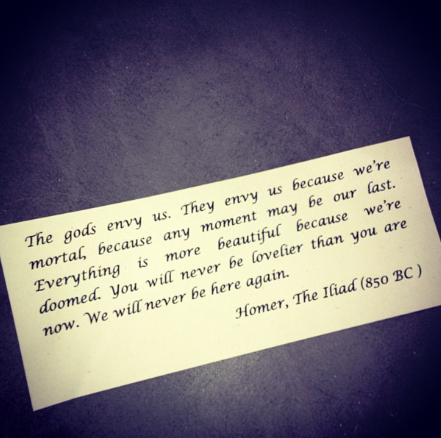 The gods envy us. They envy us because we're
mortal, because any moment may be our last.
Everything is more beautiful because we're
doomed. You will never be lovelier than you are
now. We will never be here again.
Homer, The Iliad (850 BC )